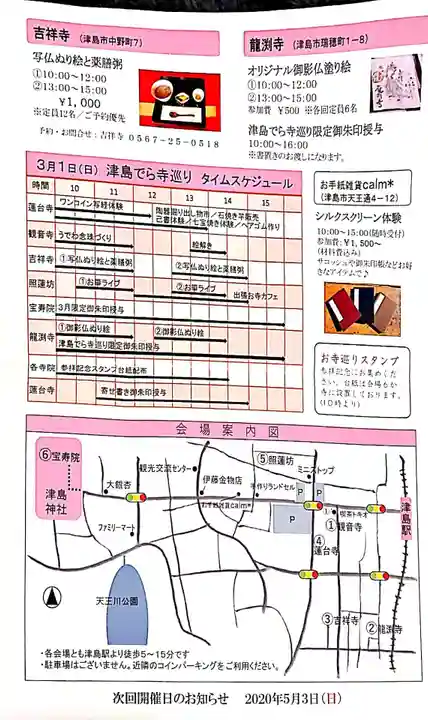 吉祥寺 (津島市中野町7)
写仏ぬり絵と薬膳粥
①10:00〜12:00
②13:00〜15:00
¥1,000
※定員12名／ご予約優先
予約・お問合せ：吉祥寺 0567-25-0518
龍渕寺 (津島市瑞穂町1-8)
オリジナル御影仏塗り絵
①10:00〜12:00
②13:00〜15:00
参加費 ¥500 ※各回定員6名
津島でら寺巡り限定御朱印授与
10:00〜16:00
※書置きのお渡しになります。
3月1日(日) 津島でら寺巡り タイムスケジュール
時間 10 11 12 13 14 15
蓮台寺 ワンコイン写経体験
陶器掘り出し物市／石焼き芋販売
己書体験／七宝焼き体験／ヘアゴム作り
観音寺 うでわ念珠づくり 絵解き
吉祥寺 ①写仏ぬり絵と薬膳粥 ②写仏ぬり絵と薬膳粥
照蓮坊 ①お箏ライブ ②お箏ライブ 出張お寺カフェ
宝寿院 3月限定御朱印授与
龍渕寺 ①御影仏ぬり絵 ②御影仏ぬり絵
津島でら寺巡り限定御朱印授与
各寺院 参拝記念スタンプ台紙配布
蓮台寺 寄せ書き御朱印授与
お手紙雑貨calm*
(津島市天王通4-12)
シルクスクリーン体験
10:00〜15:00(随時受付)
参加費：¥1,500〜
(材料費込み)
サコッシュや御朱印帳などお好
きなアイテムで♪
お寺巡りスタンプ
参拝記念にお集めくだ
さい。台紙は会場各か
寺に設置しております。
(10時より)
会場案内図
⑥宝寿院
津島
神社
大銀杏
観光交流センター
ファミリーマート
伊藤金物店
お手紙雑貨calm*
⑤照蓮坊
手作りランドセル
ミニストップ
P
P
P
喫茶トキオ
①
①観音寺
④
蓮台寺
③吉祥寺
②龍渕寺
津島駅
天王川公園
・各会場とも津島駅より徒歩5〜15分です
・駐車場はございません。近隣のコインパーキングをご利用ください。
次回開催日のお知らせ 2020年5月3日(日)